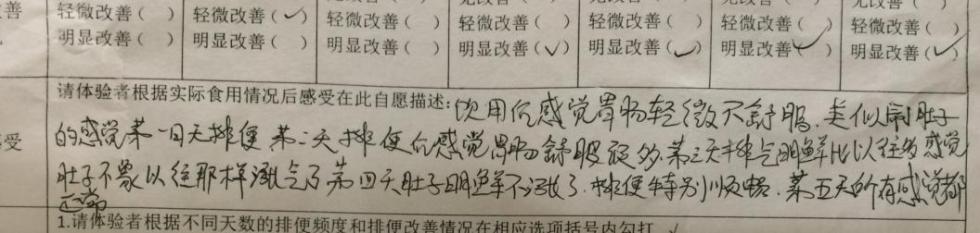 善 轻微改善( ) 轻微改善(✓) 轻微改善( ) 轻微改善( ) 轻微改善( ) 轻微改善( ) 轻微改善( )
明显改善( ) 明显改善( ) 明显改善( ) 明显改善(✓) 明显改善(✓) 明显改善(✓) 明显改善(✓)
请体验者根据实际食用情况后感受在此自愿描述:饮用后感觉胃肠轻微不舒服,类似闹肚子
受 的感觉第一日无排便 第二天排便后感觉胃肠舒服很多 第三天排气明鲜比以往多感觉
肚子不象以往那样涨气了 第四天肚子明鲜不涨了,排便特别顺畅.第五天所有感觉都
正常
1.请体验者根据不同天数的排便频度和排便改善情况在相应选项括号内勾打 ✓